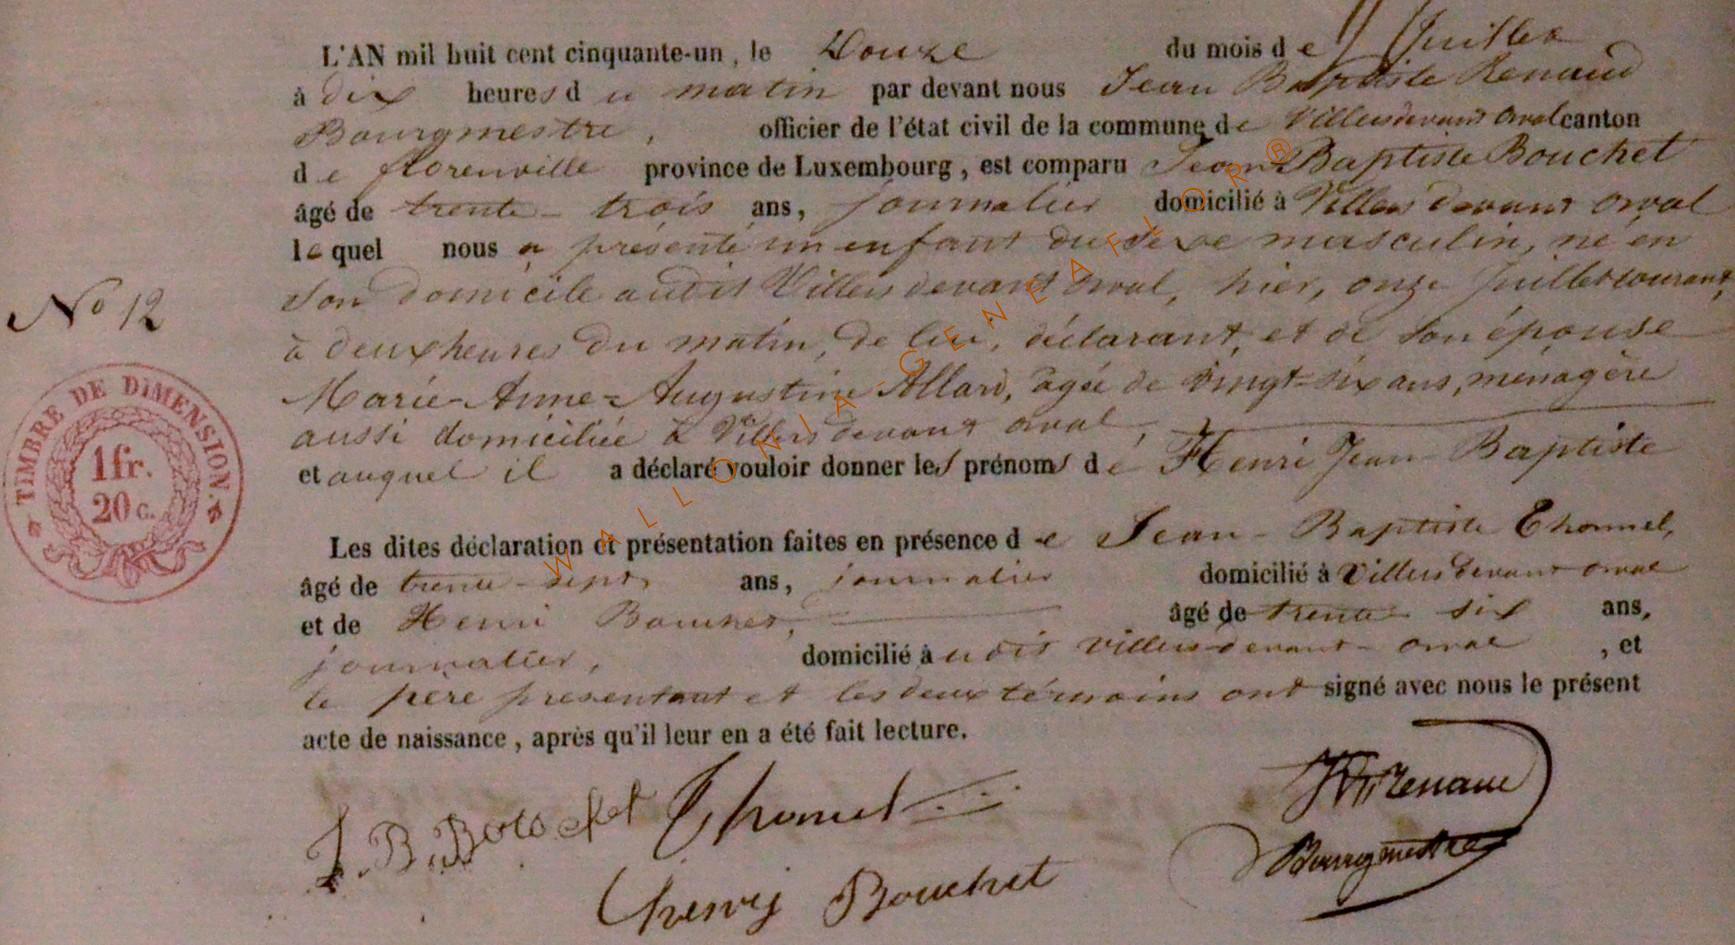 L'AN mil huit cent cinquante-un, le Douze du mois de Juillet
à dix heures du matin par devant nous Jean Baptiste Renaud
Bourgmestre, officier de l'état civil de la commune de Villers devant orval canton
de florenville province de Luxembourg, est comparu Jean Baptiste Bouchet
âgé de trente-trois ans, journalier domicilié à Villers devant orval
lequel nous a présenté un enfant du sexe masculin, né en
son domicile audit Villers devant orval, hier, onze Juillet courant,
No 12
à deux heures du matin, de lui, déclarant, et de son épouse
Marie-Anne-Augustine Allard, âgée de vingt-six ans, ménagère
aussi domiciliée à Villers devant orval,
et auquel il a déclaré vouloir donner les prénoms de Henri Jean Baptiste
TIMBRE DE DIMENSION.
1fr.
20 c.
Les dites déclaration et présentation faites en présence de Jean-Baptiste Thomnel,
âgé de trente-sept ans, journalier domicilié à Villers devant orval
et de Henri Bouchet, âgé de trente six ans,
journalier, domicilié audit Villers devant orval, et
le père présentant et les deux témoins ont signé avec nous le présent
acte de naissance, après qu'il leur en a été fait lecture.
J.B. Bouchet Thomel JB Renaud
henry Bouchet Bourgmestre
WALLONIA.GENEAFLOR®